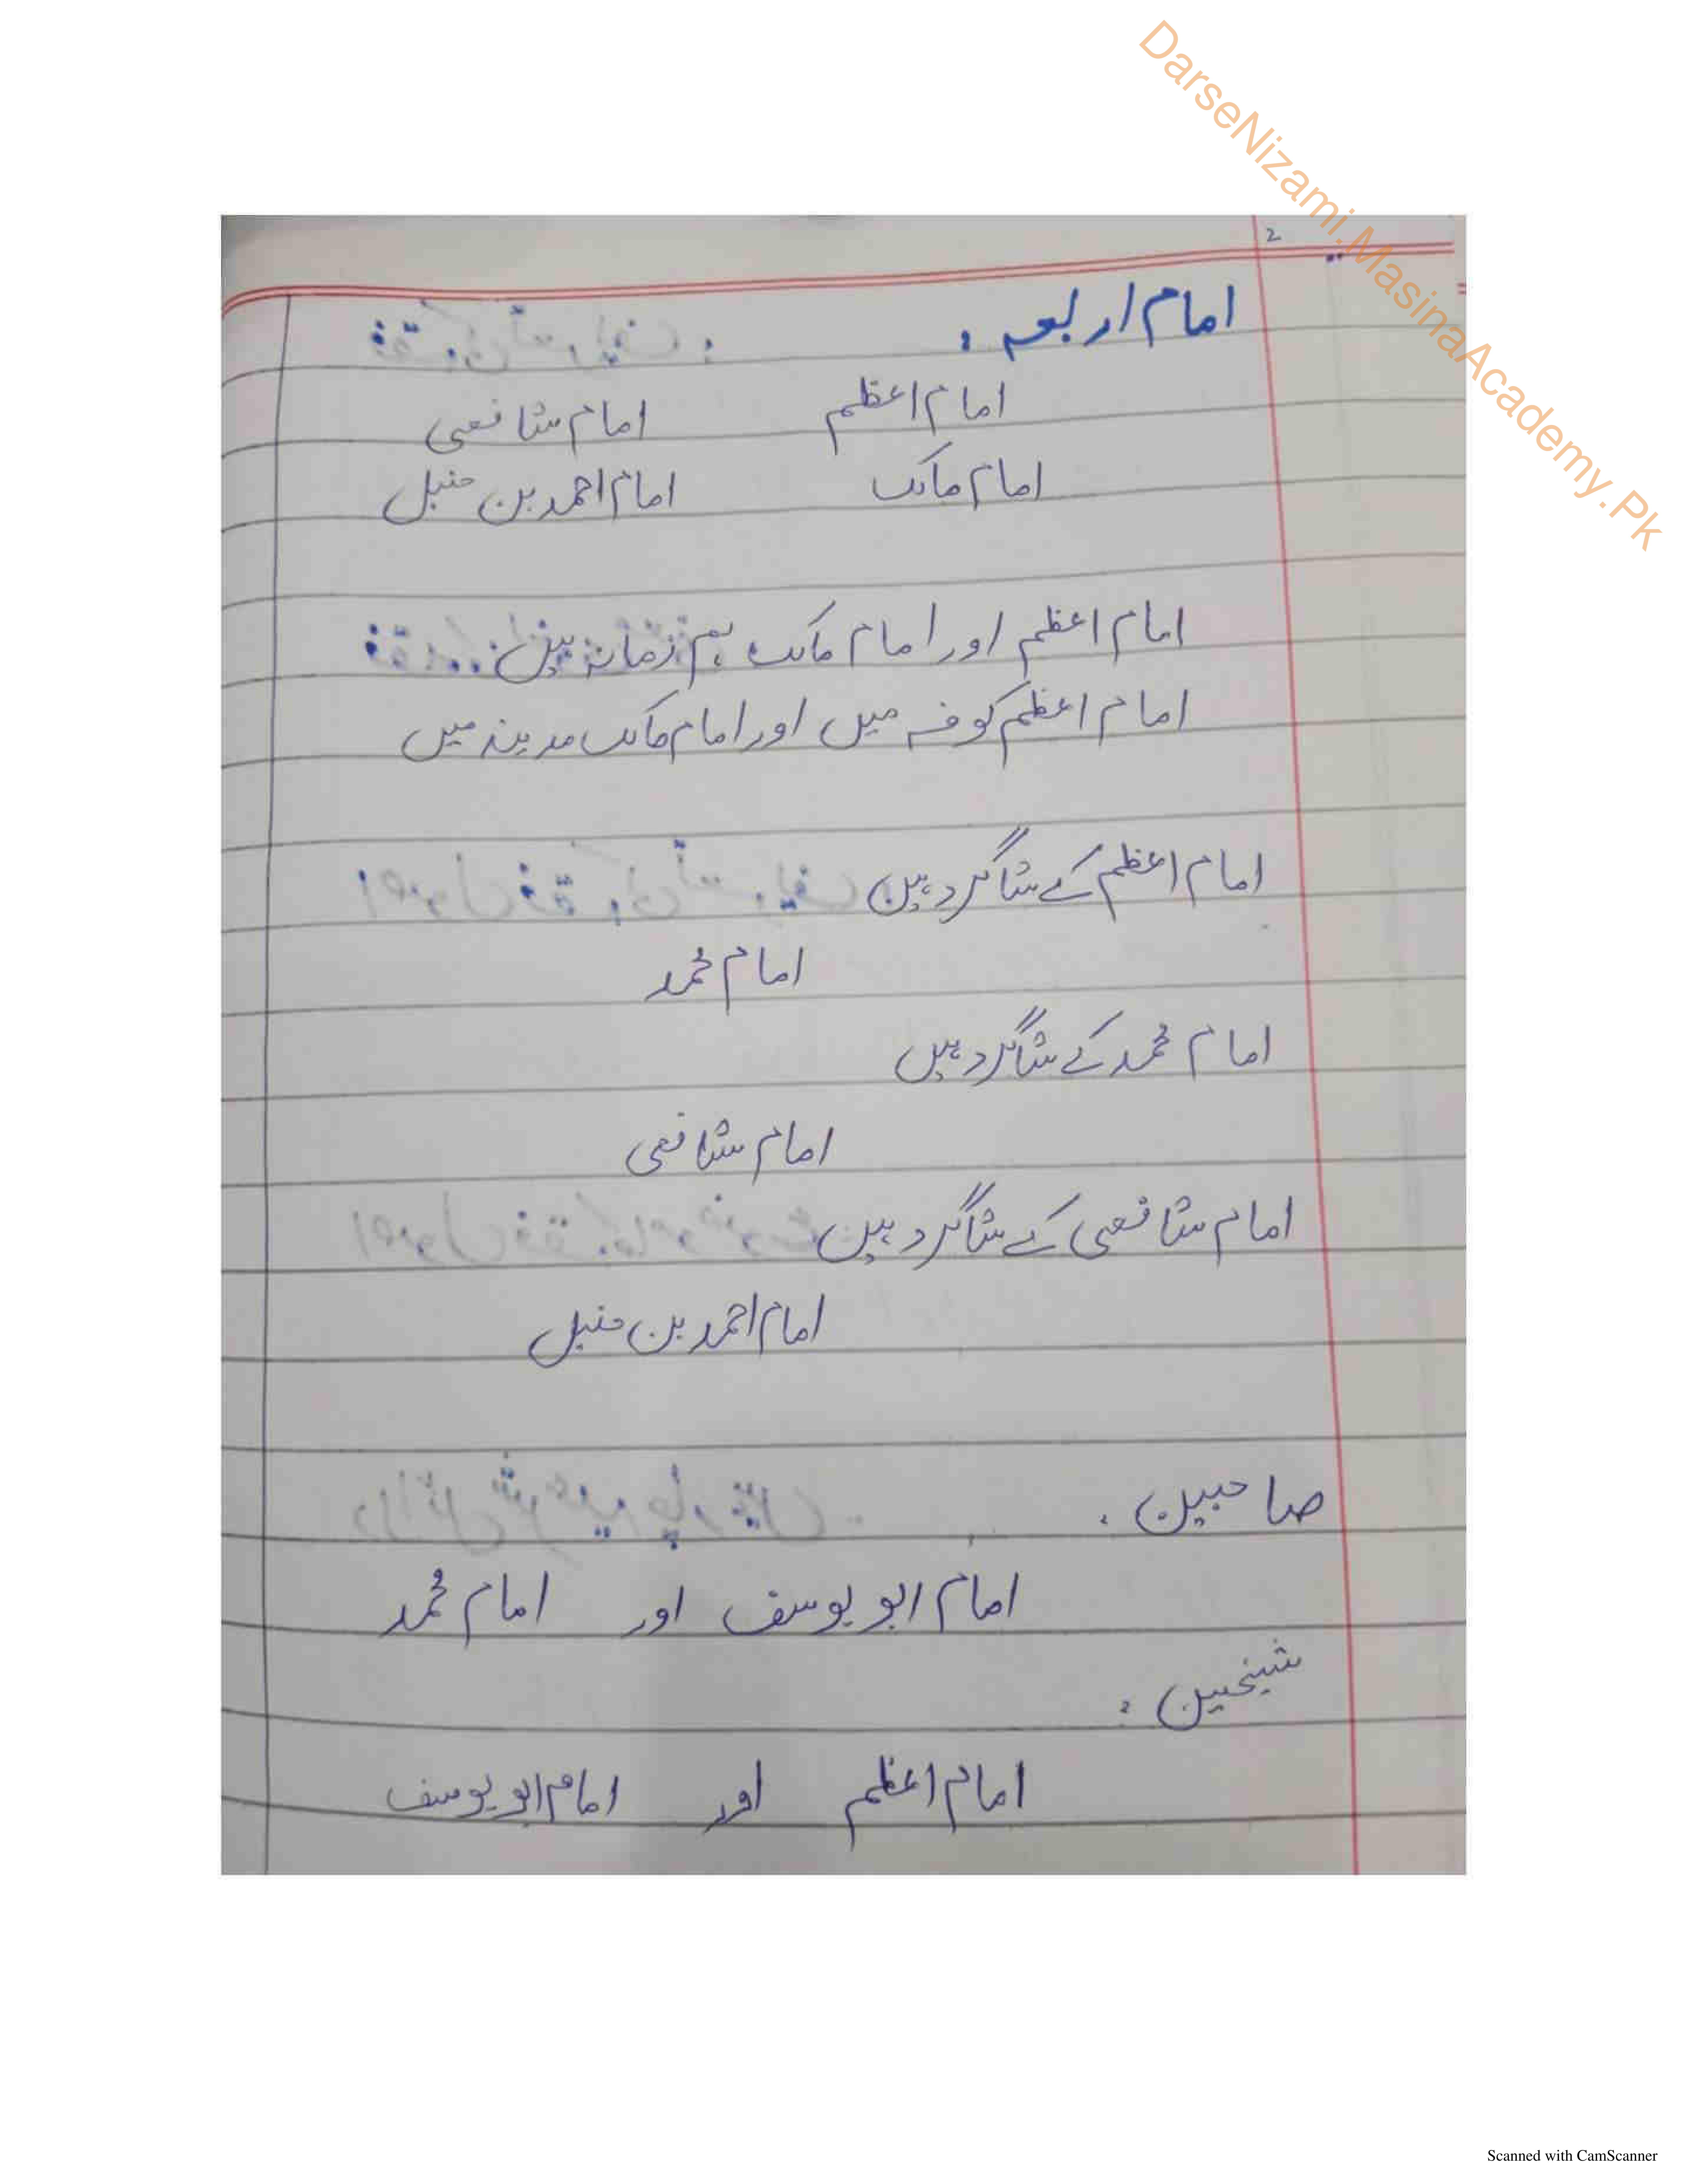 DarseNizami.MasinaAcademy.Pk
2
امام اربعہ :
امام اعظم امام شافعی
امام مالک امام احمد بن حنبل
امام اعظم اور امام مالک ہم زمانہ ہیں
امام اعظم کوفہ میں اور امام مالک مدینہ میں
امام اعظم کے شاگرد ہیں
امام محمد
امام محمد کے شاگرد ہیں
امام شافعی
امام شافعی کے شاگرد ہیں
امام احمد بن حنبل
صاحبین :
امام ابو یوسف اور امام محمد
شیخین :
امام اعظم اور امام ابو یوسف
Scanned with CamScanner